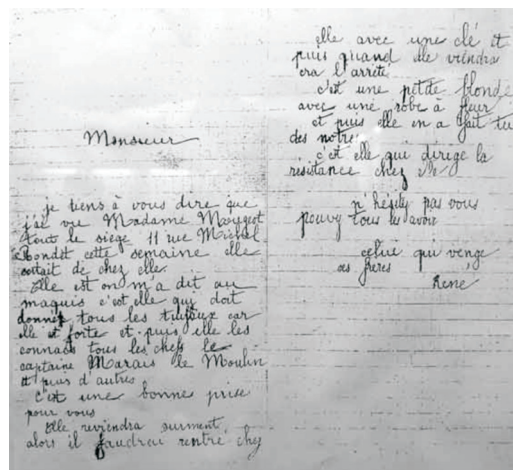 Monsieur
je tiens à vous dire que
j'ai vu Madame Mougeot
tout le siège 11 rue Michel
Bondet cette semaine elle
sortait de chez elle.
Elle est on m'a dit au
maquis c'est elle qui doit
donner tous les tuyaux car
elle est forte et puis elle les
connait tous les chefs le
captaine Marais le Moulin
et puis d'autres
C'est une bonne prise
pour vous
Elle reviendra surment,
alors il faudrai rentre chez
elle avec une clé et
puis quand elle viendra
era l'arrête
c'est une petite blonde
avec une robe à fleur
et puis elle en a fait tu
des notre.
c'est elle qui dirige la
résistance chez elle
n'hésity pas vous
pouvy tous les avoir
celui qui venge
ses frères
René